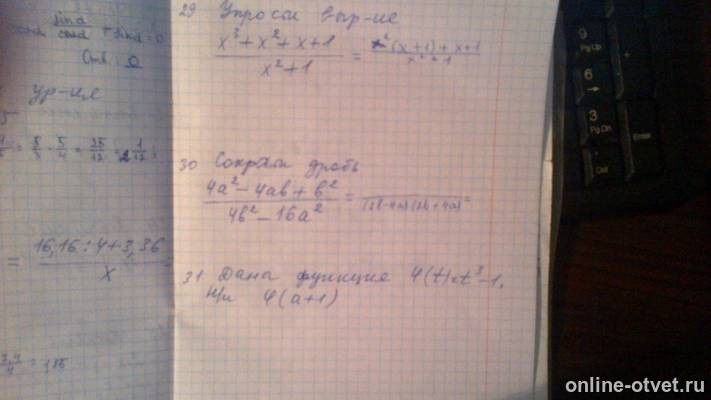 sina
cosa
sina = 0
Отв: 0
ур-ия
= 5/3 · 5/4 = 25/12 = 2 1/12;
= (16,16 : 4 + 3,36)/x =
= 185
29 Упрости выр-ие
(x³ + x² + x + 1)/(x² + 1) = (x²(x + 1) + x + 1)/(x² + 1)
30 Сократи дробь
(4a² - 4ab + b²)/(4b² - 16a²) = /(2b - 4a)(2b + 4a) =
31 Дана функция φ(t) = t³ - 1.
Н/и φ(a+1)
9
PgUp
+
6
→
3
PgDn
Enter
.
Del
online-otvet.ru